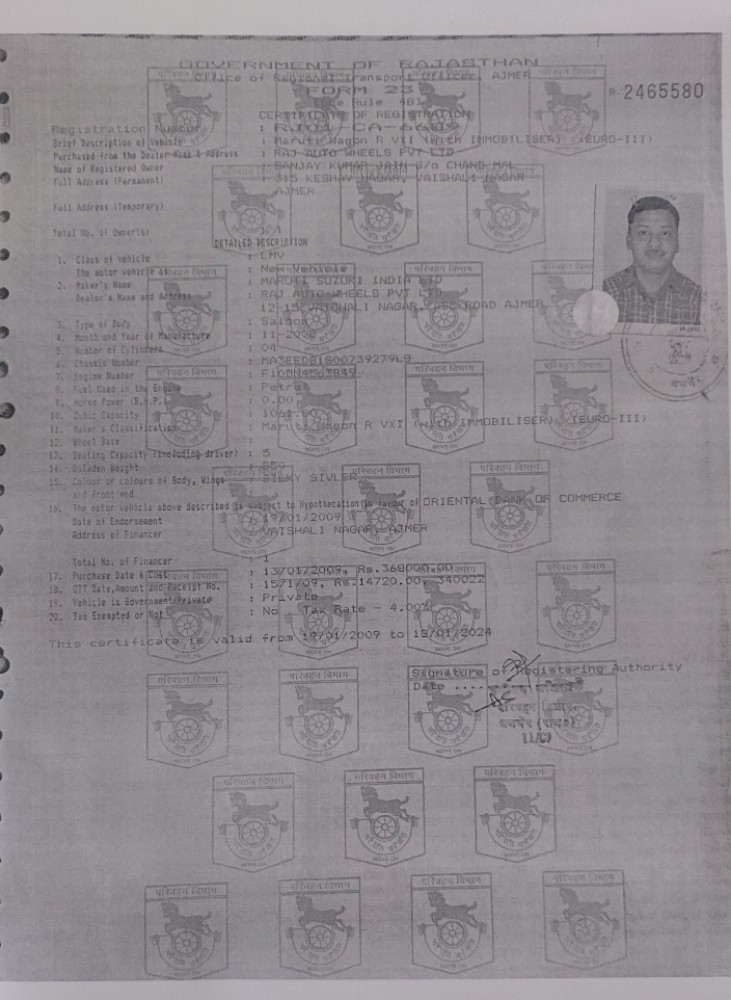 GOVERNMENT OF RAJASTHAN
Office of Regional Transport Officer, AJMER
FORM 23
Rule 48
R 2465580
CERTIFICATE OF REGISTRATION
Registration Number : RJ01-CA-6609
Brief Description of Vehicle : Maruti Wagon R VXI (with IMMOBILISER) (EURO-III)
Purchased from the Dealer Name & Address : RAJ AUTO WHEELS PVT LTD
Name of Registered Owner : SANJAY KUMAR JAIN S/o CHAND MAL
Full Address (Permanent) : 315 KESHAV NAGAR, VAISHALI NAGAR
AJMER
Full Address (Temporary) :
Total No. of Owner(s) : 1
DETAILED DESCRIPTION
1. Class of vehicle : LMV
The motor vehicle is : New Vehicle
2. Maker's Name : MARUTI SUZUKI INDIA LTD
Dealer's Name and Address : RAJ AUTO WHEELS PVT LTD
12-15 VAISHALI NAGAR, ROAD AJMER
3. Type of Body : Saloon
4. Month and Year of Manufacture : 11-2008
5. Number of Cylinders : 04
6. Chassis Number :
7. Engine Number :
8. Fuel Used in the Engine : Petrol
9. Horse Power (B.H.P.) : 0.00
10. Cubic Capacity :
11. Maker's Classification : Maruti Wagon R VXI (with IMMOBILISER) (EURO-III)
12. Wheel Base :
13. Seating Capacity (including driver) : 5
14. Unladen Weight :
15. Colour or colours of Body, Wings : SILKY SIVLER
and front end
16. The motor vehicle above described is subject to Hypothecation in favour of ORIENTAL BANK OF COMMERCE
Date of Endorsement : 19/01/2009
Address of Financer : VAISHALI NAGAR, AJMER
Total No. of Financer : 1
17. Purchase Date & Cost : 13/01/2009, Rs.368000.00
18. OTT Date, Amount and Receipt No. : 15/1/09, Rs.14720.00, 340022
19. Vehicle is Government/Private : Private
20. Tax Exempted or Not : No Tax Rate - 4.00%
This certificate is valid from 19/01/2009 to 18/01/2024
Signature of Registering Authority
Date ........
परिवहन विभाग